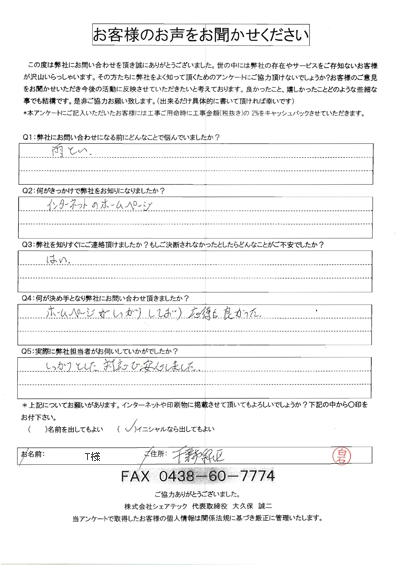 お客様のお声をお聞かせください
この度は弊社にお問い合わせを頂き誠にありがとうございました。世の中には弊社の存在やサービスをご存知ないお客様
が沢山いらっしゃいます。その方たちに弊社をよく知って頂くためのアンケートにご協力頂けないでしょうか?お客様のご意見
をお聞かせいただき今後の活動に反映させていただきたいと考えております。良かったこと、嬉しかったことどのような些細な
事でも結構です。是非ご協力お願い致します。(出来るだけ具体的に書いて頂ければ幸いです)
*本アンケートにご記入いただいたお客様には工事ご用命時に工事金額(税抜き)の 2%をキャッシュバックさせていただきます。
Q1:弊社にお問い合わせになる前にどんなことで悩んでいましたか?
雨とい.
Q2:何がきっかけで弊社をお知りになりましたか?
インターネットのホームページ
Q3:弊社を知りすぐにご連絡頂けましたか?もしご決断されなかったとしたらどんなことがご不安でしたか?
はい.
Q4:何が決め手となり弊社にお問い合わせ頂きましたか?
ホームページがしっかりしており 応待も良かった.
Q5:実際に弊社担当者がお伺いしていかがでしたか?
しっかりとした対応で安心しました.
*上記についてお願いがあります。インターネットや印刷物に掲載させて頂いてもよろしいでしょうか?下記の中から〇印を
お付下さい。
( )名前を出してもよい (✓)イニシャルなら出してもよい
お名前: T様 ご住所: 千葉市緑区 白石
FAX 0438-60-7774
ご協力ありがとうございました。
株式会社シェアテック 代表取締役 大久保 誠二
当アンケートで取得したお客様の個人情報は関係法規に基づき厳正に管理いたします。